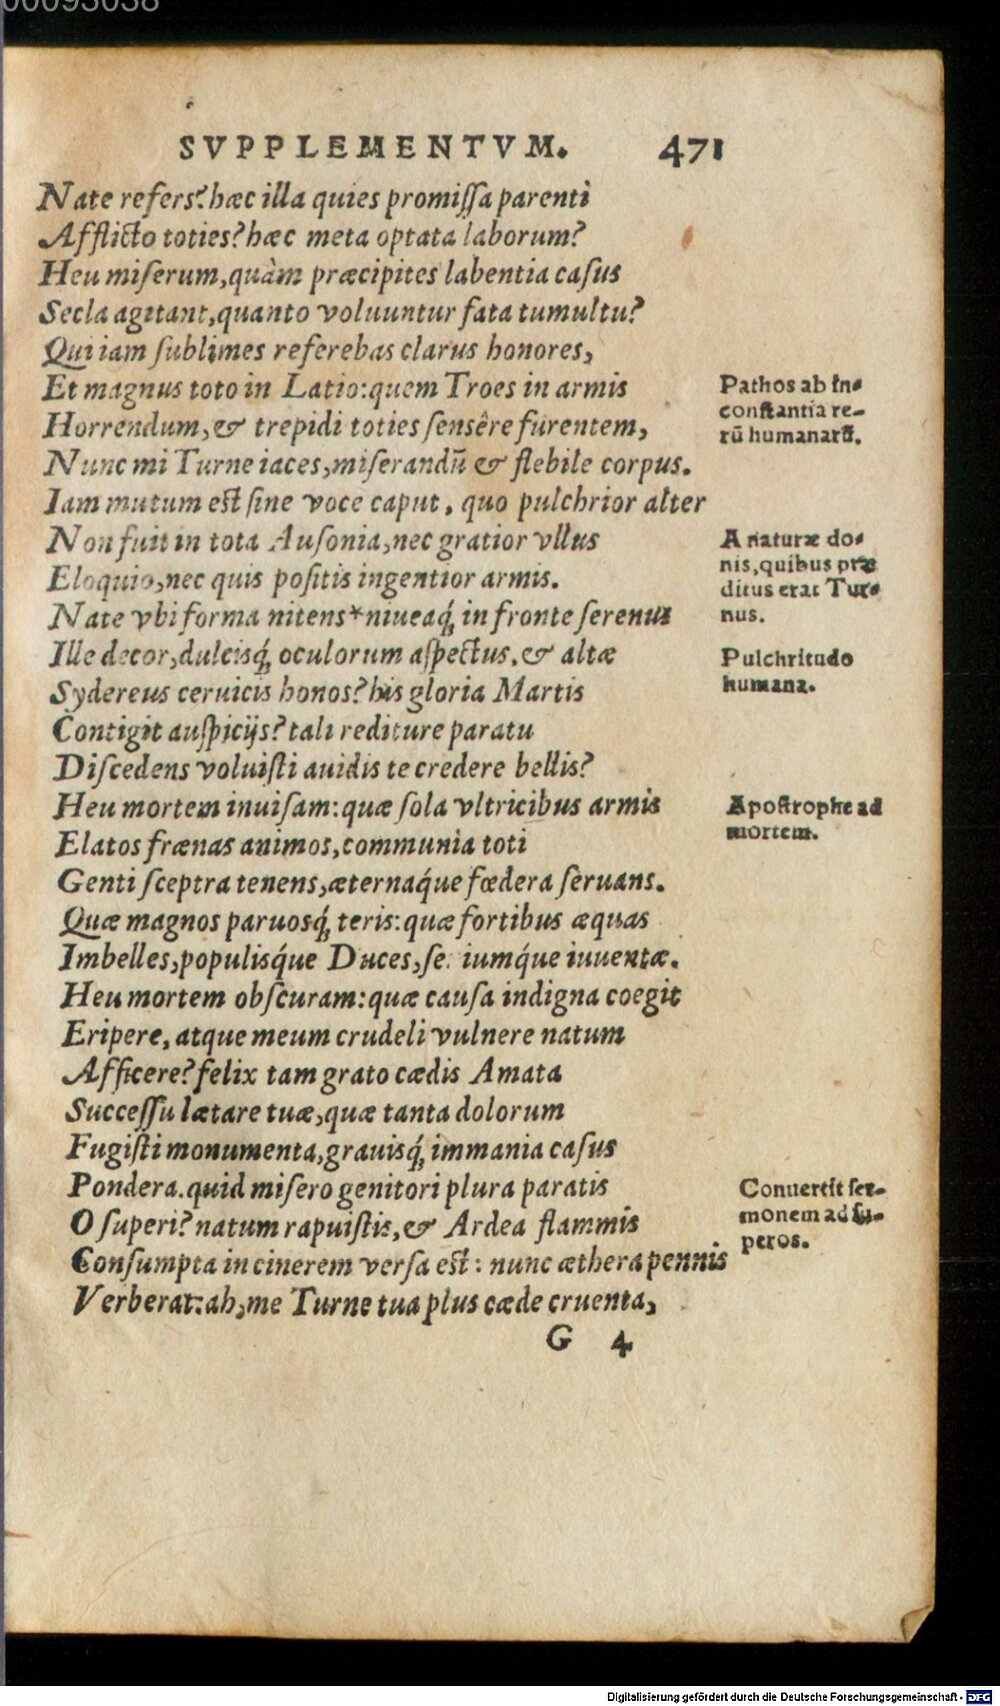 00093038
SVPPLEMENTVM. 471
Nate refers? hæc illa quies promiſſa parenti
Afflicto toties? hæc meta optata laborum?
Heu miſerum, quàm præcipites labentia caſus
Secla agitant, quanto voluuntur fata tumultu?
Qui iam ſublimes referebas clarus honores,
Et magnus toto in Latio: quem Troes in armis
Horrendum, & trepidi toties ſensêre furentem,
Nunc mi Turne iaces, miſerandũ & flebile corpus.
Iam mutum eſt ſine voce caput, quo pulchrior alter
Non fuit in tota Auſonia, nec gratior vllus
Eloquio, nec quis poſitis ingentior armis.
Nate vbi forma nitens* niueaq́; in fronte ſerenus
Ille decor, dulcisq́; oculorum aſpectus. & altæ
Sydereus ceruicis honos? his gloria Martis
Contigit auſpicijs? tali rediture paratu
Diſcedens voluiſti auidis te credere bellis?
Heu mortem inuiſam: quæ ſola vltricibus armis
Elatos frænas animos, communia toti
Genti ſceptra tenens, æternaq́ue fœdera ſeruans.
Quæ magnos paruosq́; teris: quæ fortibus æquas
Imbelles, populisq́ue Duces, ſe iumq́ue iuuentæ.
Heu mortem obſcuram: quæ cauſa indigna coegit
Eripere, atque meum crudeli vulnere natum
Afficere? felix tam grato cædis Amata
Succeſſu lætare tuæ, quæ tanta dolorum
Fugiſti monumenta, grauisq́; immania caſus
Pondera. quid miſero genitori plura paratis
O ſuperi? natum rapuiſtis, & Ardea flammis
Conſumpta in cinerem verſa eſt: nunc æthera pennis
Verberat: ah, me Turne tua plus cæde cruenta,
G 4
Pathos ab in-
conſtantia re-
rũ humanarũ.
A naturæ do-
nis, quibus præ
ditus erat Tur-
nus.
Pulchritudo
humana.
Apoſtrophe ad
mortem.
Conuertit ſer-
monem ad ſu-
peros.
Digitalisierung gefördert durch die Deutsche Forschungsgemeinschaft - DFG